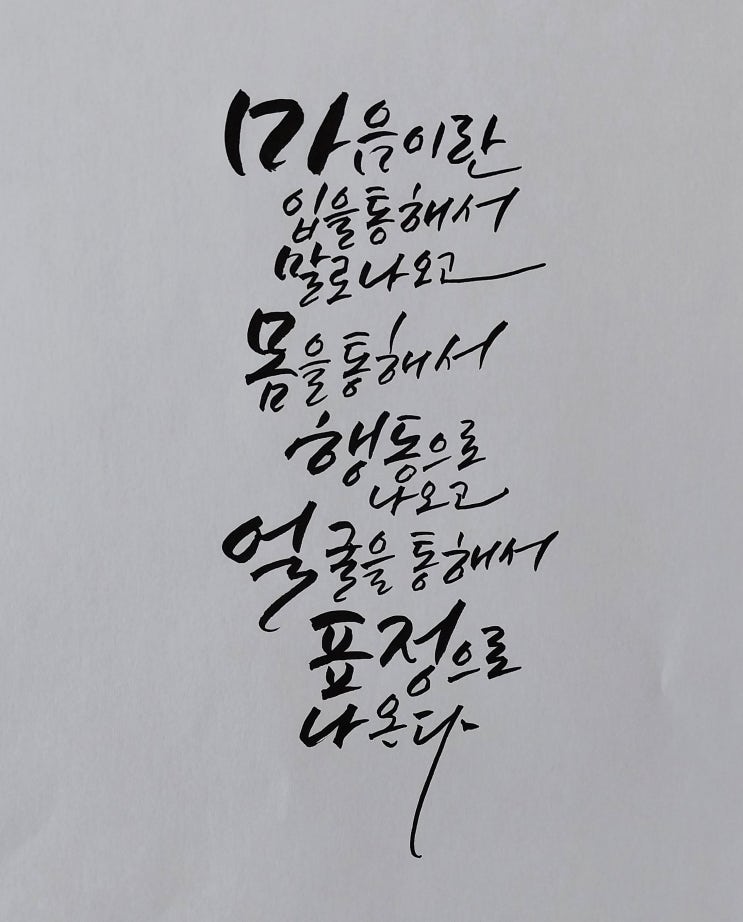 마음이란
입을통해서
말로나오고
몸을통해서
행동으로
나오고
얼굴을 통해서
표정으로
나온다